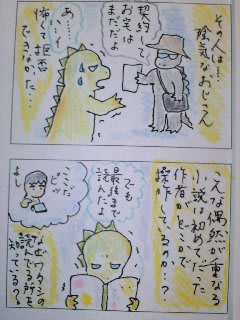 その人は……
陰気なおじさん
契約
お実は
まだだよ
あ…
い…
怖くて拒否
できなかった…
こんな偶然が重なる
小説は初めてだった
作者がどこかで
操作しているのか…？
でも
最後まで
読んだよ
ここで
ピッ
よし
読んでる所を
知っているの？